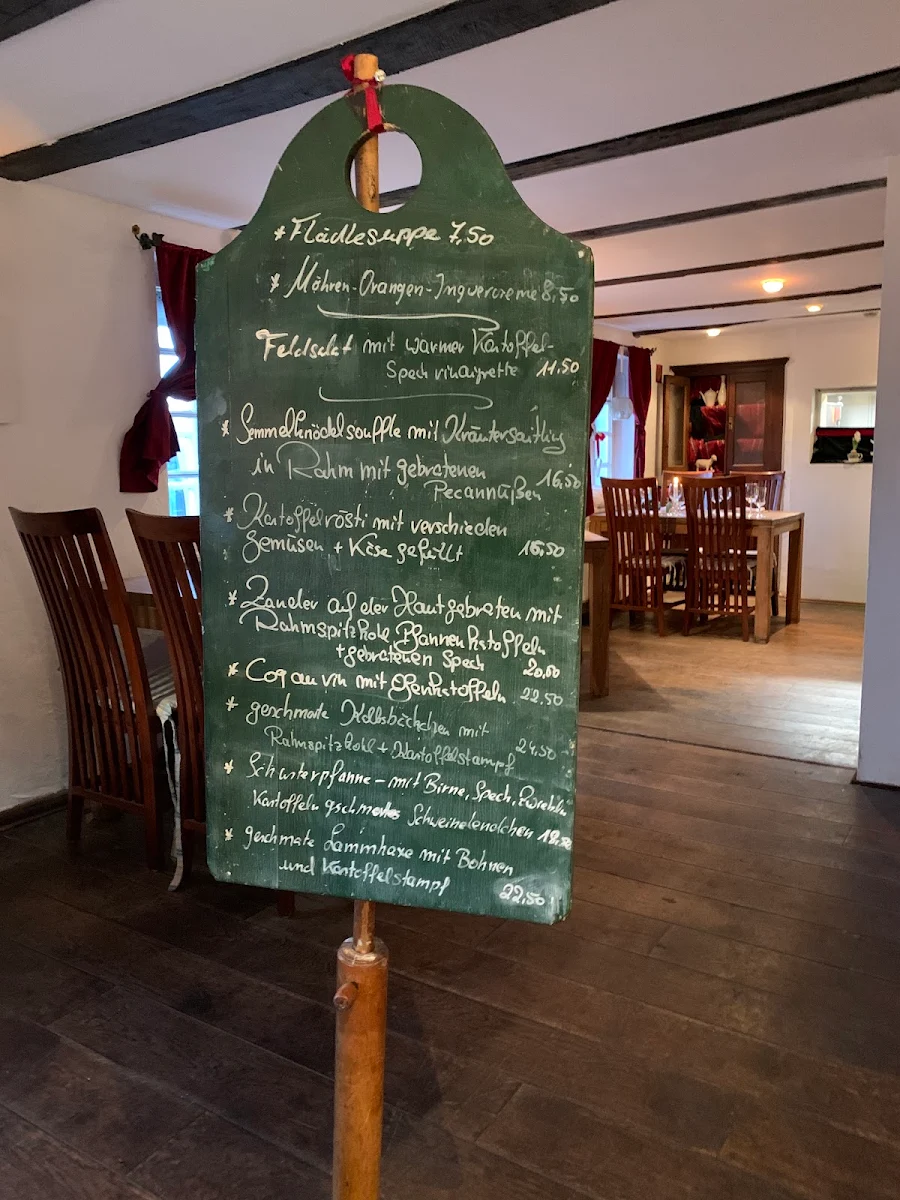 * Flädlesuppe 7,50
* Möhren-Orangen-Ingwercreme 8,50
Feldsalat mit warmer Kartoffel-
Speck vinaigrette 11,50
* Semmelknödelsouffle mit Kräutersaitling
in Rahm mit gebratenen 16,50
Pecannüßen
* Kartoffelrösti mit verschieden
Gemüsen + Käse gefüllt 16,50
* Zander auf der Haut gebraten mit
Rahmspitzkohl, Pfannenkstoffeln
+ gebratenen Speck 20,00
* Coq au vin mit Ofenkstoffeln 22,50
* geschmorte Kalbsbäckchen mit
Rahmspitzkohl + Kartoffelstampf 24,50
* Schusterpfanne - mit Birne, Speck,
Kartoffeln gschmortes Schweinelendchen
* geschmorte Lammhaxe mit Bohnen
und Kartoffelstampf 22,50